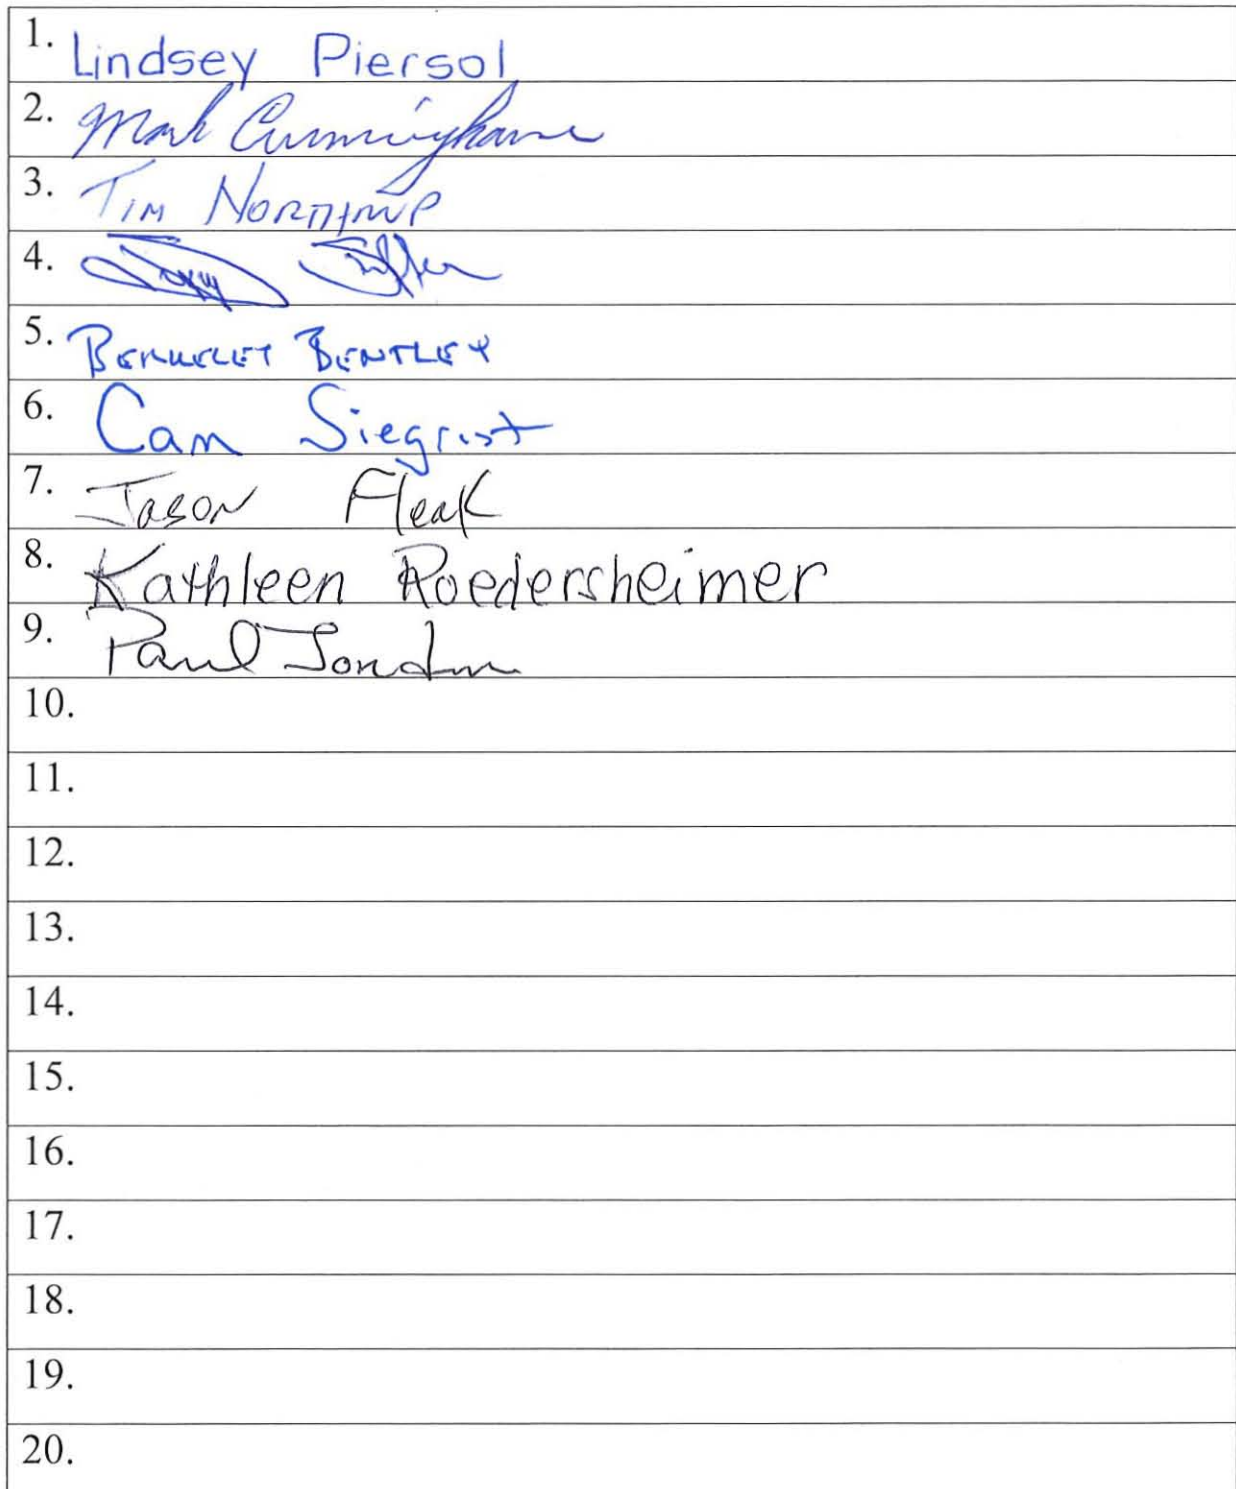 1. Lindsey Piersol
2. Mark Cunningham
3. Tim Northrup
4.
5. Berkeley Bentley
6. Cam Siegrist
7. Jason Fleak
8. Kathleen Roedersheimer
9. Paul Jordan
10.
11.
12.
13.
14.
15.
16.
17.
18.
19.
20.